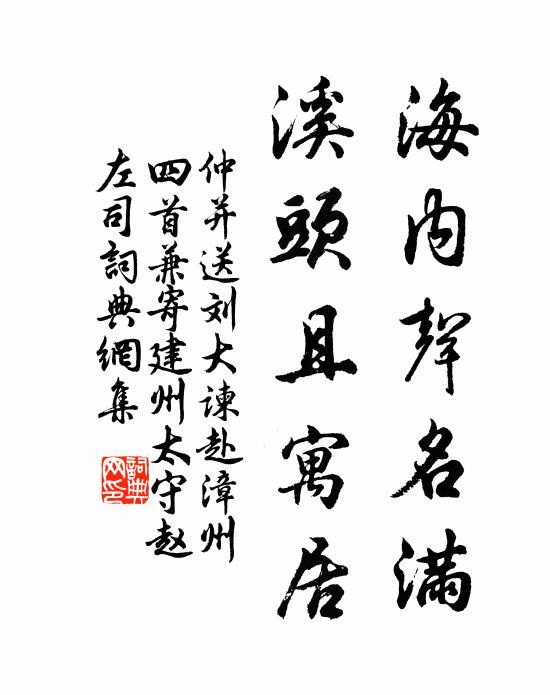 海内聲名滿
溪頭且寓居
仲并送刘大諫赴漳州
四首兼寄建州太守赵
左司詞典網集
詞典网印